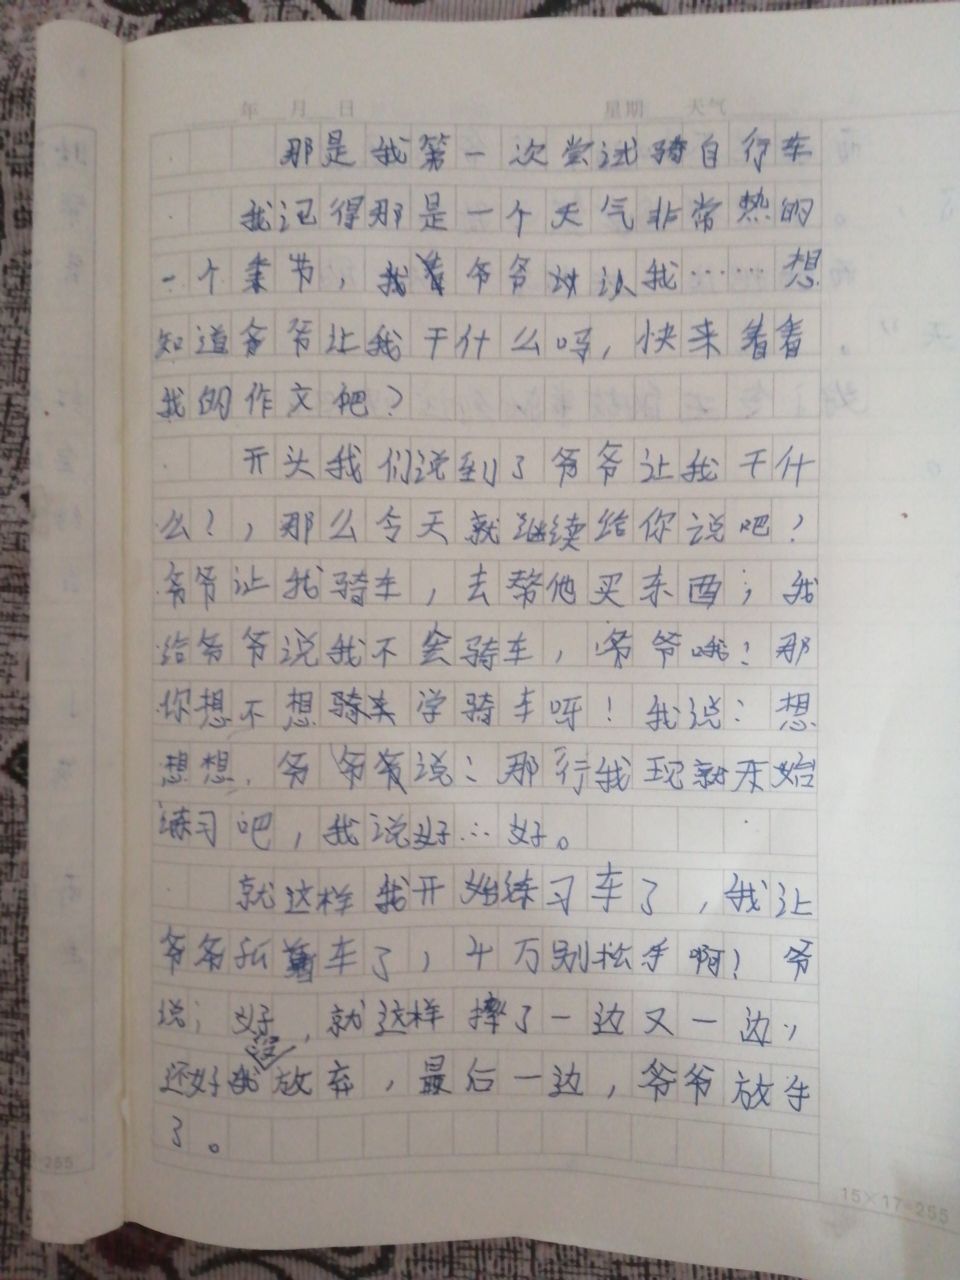 年 月 日 星期 天气
那是我第一次尝试骑自行车
我记得那是一个天气非常热的
一个季节，我爷爷让我……想
知道爷爷让我干什么吗，快来看看
我的作文吧？
开头我们说到了爷爷让我干什
么？，那么今天就继续给你说吧！
爷爷让我骑车，去帮他买东西；我
给爷爷说我不会骑车，爷爷哦！那
你想不想学骑车呀！我说：想
想想，爷爷说：那行我现就开始
练习吧，我说好∴好。
就这样我开始练习车了，我让
爷爷扶着车了，千万别松手啊！爷
说；好，就这样摔了一边又一边，
还好我没放弃，最后一边，爷爷放手
了。
15×17=255
255